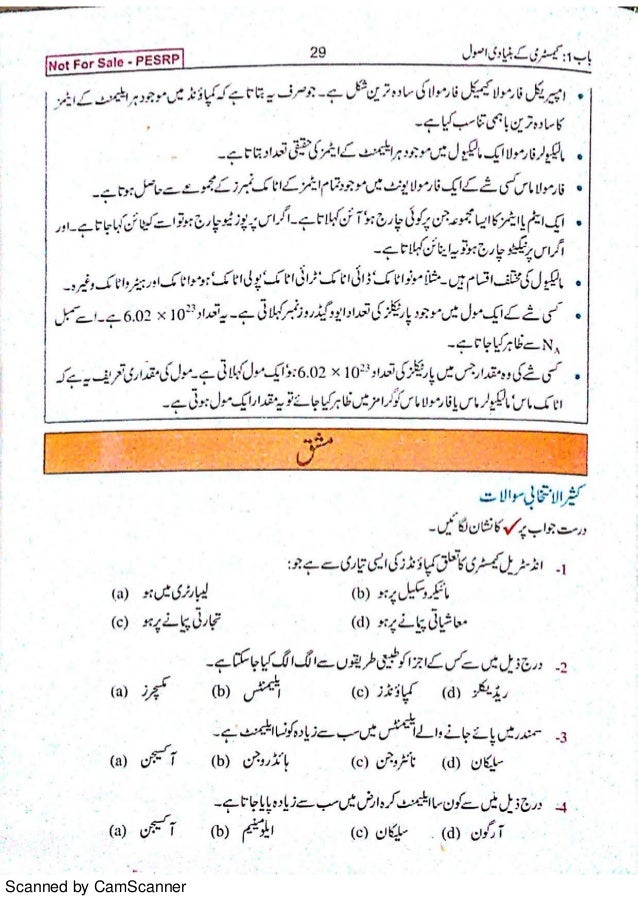 باب 1: کیمسٹری کے بنیادی اصول
29
Not For Sale - PESRP
• امپیریکل فارمولا کیمیکل فارمولا کی سادہ ترین شکل ہے۔ جو صرف یہ بتاتا ہے کہ کمپاؤنڈ میں موجود ہر ایلیمنٹ کے ایٹمز
کا سادہ ترین باہمی تناسب کیا ہے۔
• مالیکیولر فارمولا ایک مالیکیول میں موجود ہر ایلیمنٹ کے ایٹمز کی حقیقی تعداد بتاتا ہے۔
• فارمولا ماس کسی شے کے ایک فارمولا یونٹ میں موجود تمام ایٹمز کے اٹامک نمبرز کے مجموعے سے حاصل ہوتا ہے۔
• ایک ایٹم یا ایٹمز کا ایسا مجموعہ جن پر کوئی چارج ہو' آئن کہلاتا ہے۔ اگر اس پر پوزیٹیو چارج ہو تو اسے کیٹائن کہا جاتا ہے۔ اور
اگر اس پر نیگیٹو چارج ہو تو یہ اینائن کہلاتا ہے۔
• مالیکیول کی مختلف اقسام ہیں۔ مثلاً مونو اٹامک' ڈائی اٹامک' ٹرائی اٹامک' پولی اٹامک' ہومو اٹامک اور ہیٹرو اٹامک وغیرہ۔
• کسی شے کے ایک مول میں موجود پارٹیکلز کی تعداد ایووگیڈروز نمبر کہلاتی ہے۔ یہ تعداد 6.02 × 10²³ ہے۔ اسے سمبل
N_A سے ظاہر کیا جاتا ہے۔
• کسی شے کی وہ مقدار جس میں پارٹیکلز کی تعداد 6.02 × 10²³ ہو' ایک مول کہلاتی ہے۔ مول کی مقداری تعریف یہ ہے کہ
اٹامک ماس' مالیکیولر ماس یا فارمولا ماس کو گرامز میں ظاہر کیا جائے تو یہ مقدار ایک مول ہوتی ہے۔
مشق
کثیر الانتخابی سوالات
درست جواب پر ✓ کا نشان لگائیں۔
1- انڈسٹریل کیمسٹری کا تعلق کمپاؤنڈز کی ایسی تیاری سے ہے جو:
(a) لیبارٹری میں ہو (b) مائیکرو سکیل پر ہو
(c) تجارتی پیمانے پر ہو (d) معاشیاتی پیمانے پر ہو
2- درج ذیل میں سے کس کے اجزا کو طبیعی طریقوں سے الگ الگ کیا جا سکتا ہے۔
(a) مکسچرز (b) ایلیمنٹس (c) کمپاؤنڈز (d) ریڈیکلز
3- سمندر میں پائے جانے والے ایلیمنٹس میں سب سے زیادہ کونسا ایلیمنٹ ہے۔
(a) آکسیجن (b) ہائڈروجن (c) نائٹروجن (d) سلیکان
4- درج ذیل میں سے کون سا ایلیمنٹ کرہ ارض میں سب سے زیادہ پایا جاتا ہے۔
(a) آکسیجن (b) ایلومینیم (c) سلیکان (d) آرگون
Scanned by CamScanner